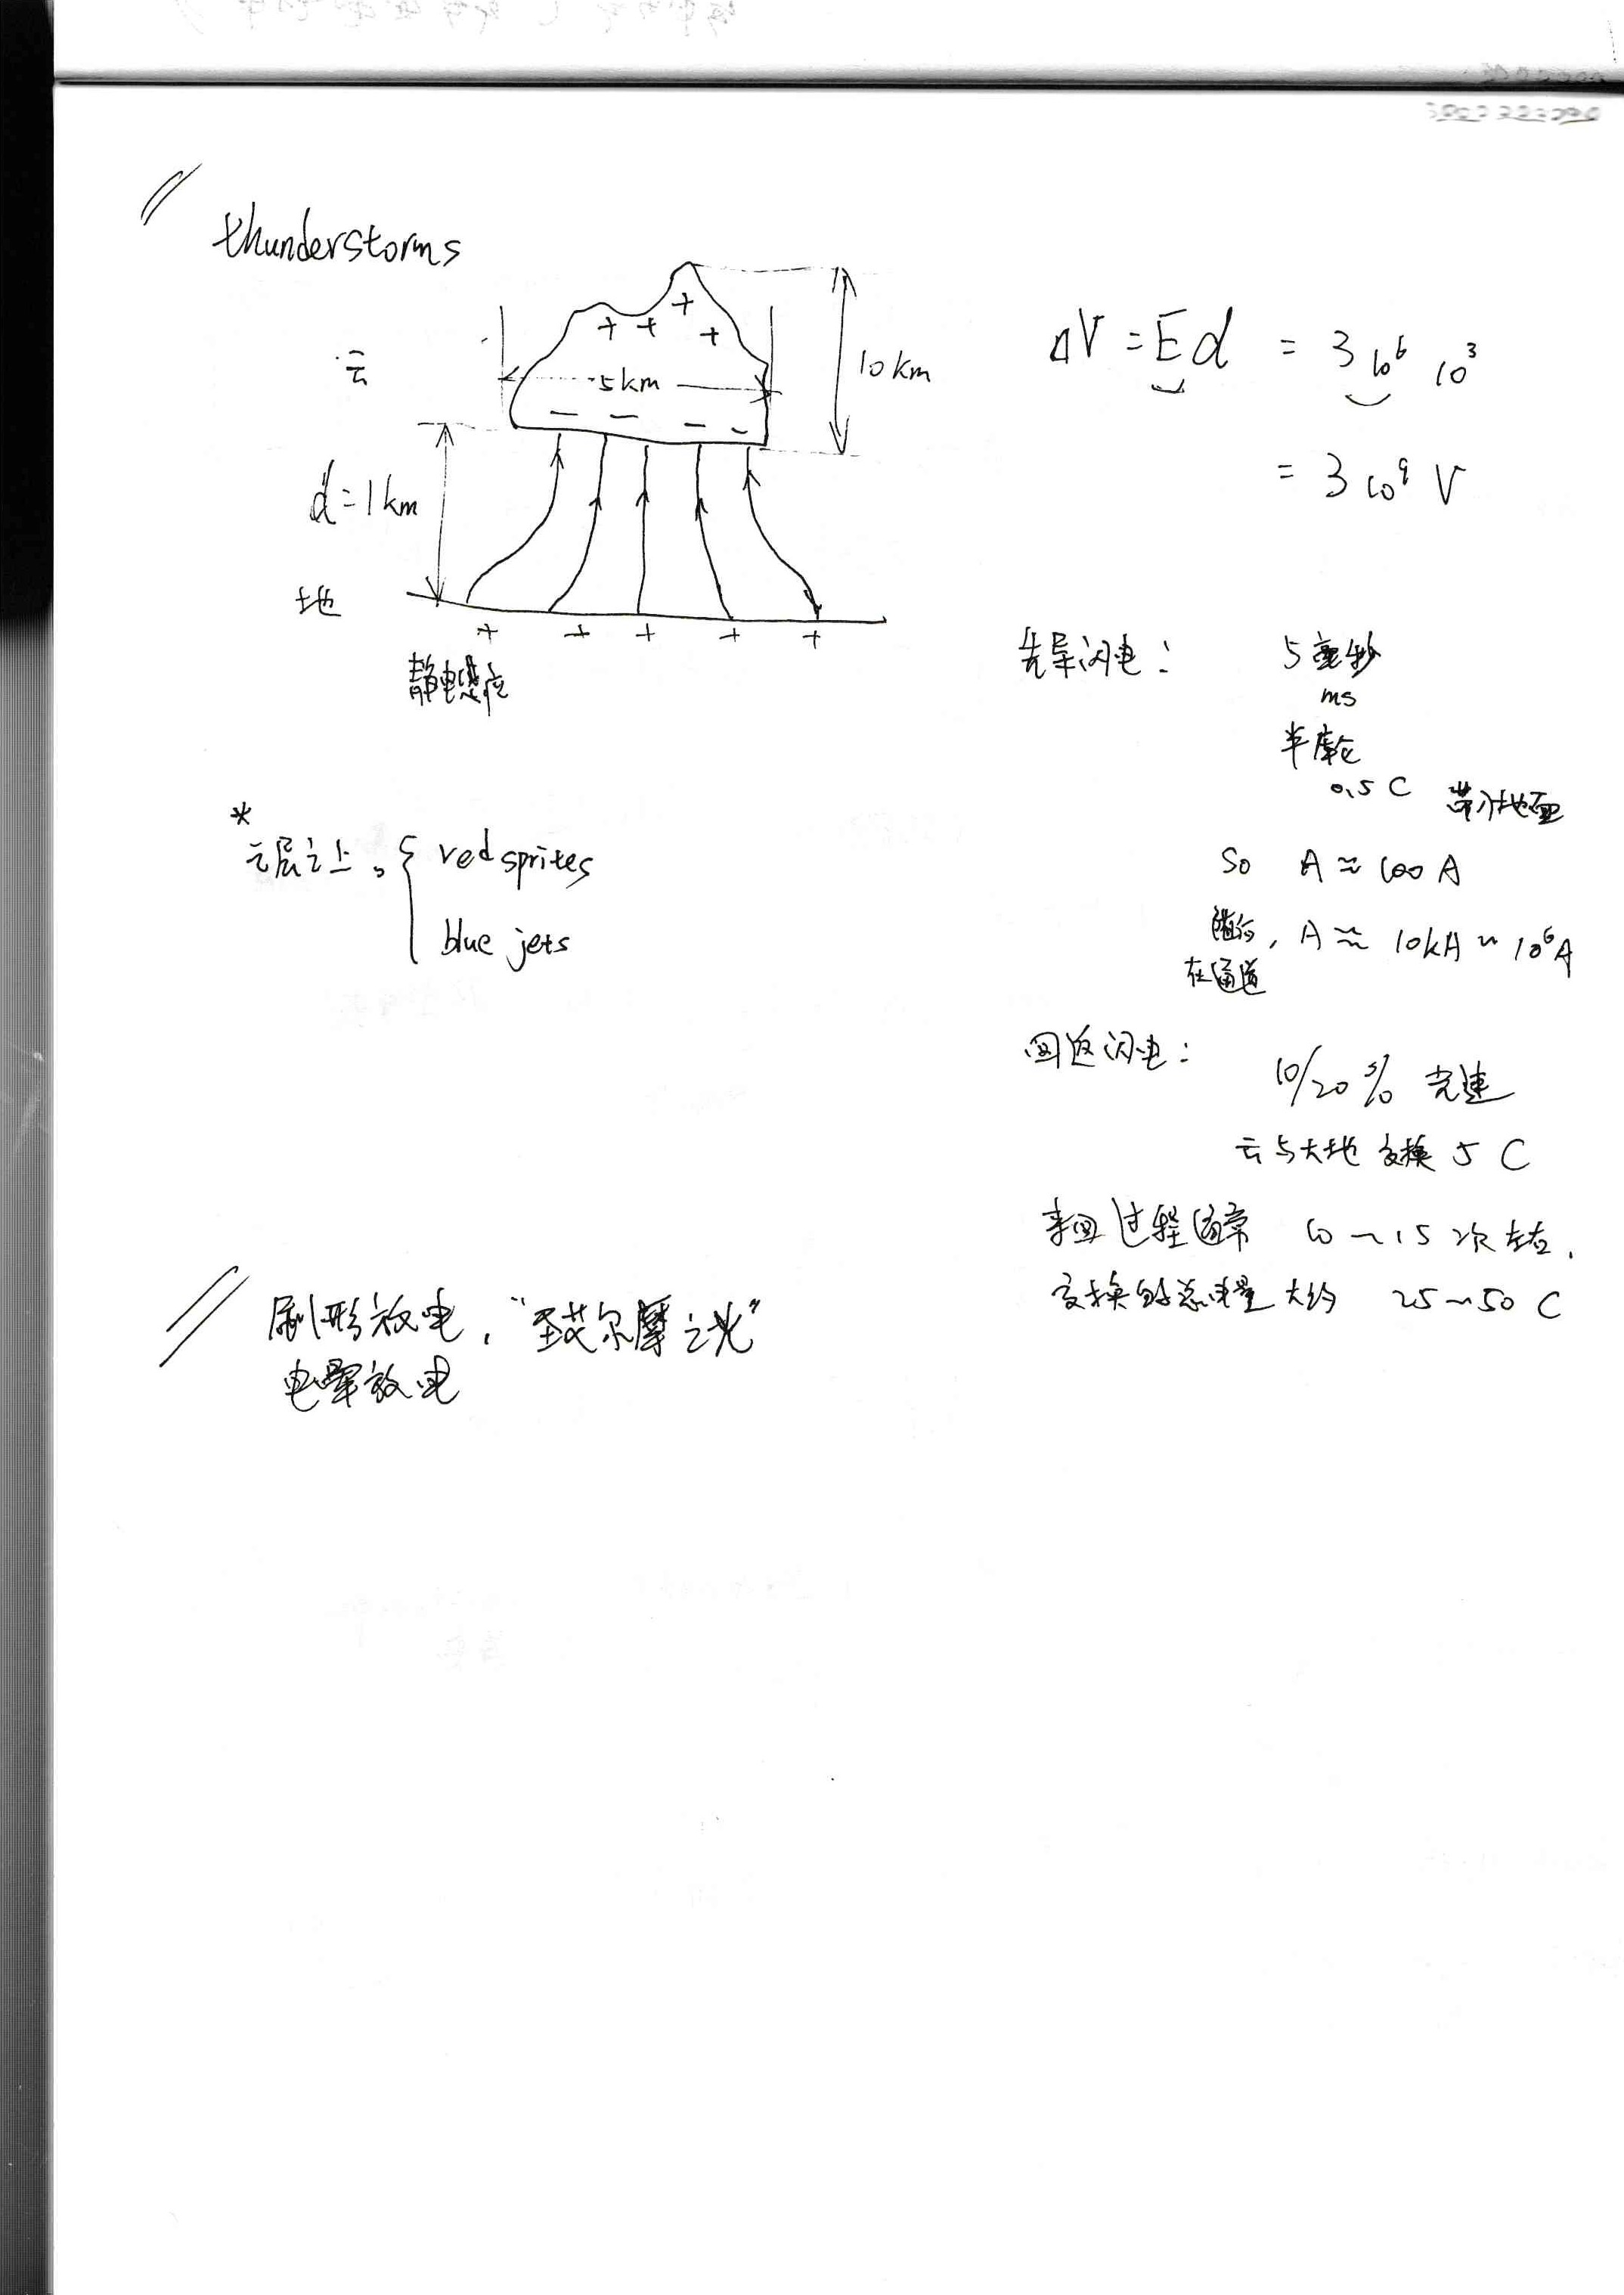 thunderstorms
云
+ + + +
5 km
10 km
− − − −
d = 1 km
地
+ + + + +
静电感应
ΔV = Ed = 3 10⁶ 10³
= 3 10⁹ V
先导闪电： 5 毫秒
ms
半库仑
0.5 C 带入地面
So A ≈ 100 A
随后, A ≈ 10kA ~ 10⁶A
在通道
*
云层之上。{ red sprites
blue jets
回返闪电：
10/20 % 光速
云与大地交换 5 C
来回过程通常 10 ~ 15 次左右.
交换的总电量大约 25 ~ 50 C
刷形放电, “圣艾尔摩之光”
电晕放电